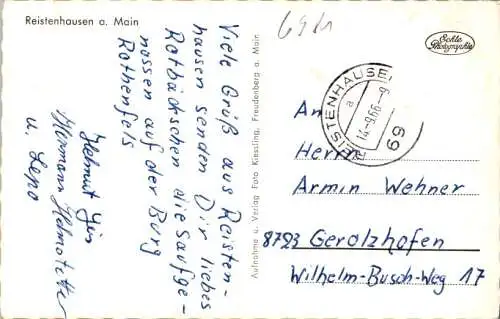 Reistenhausen a. Main
Echte
Photographie
69M
Viele Grüß aus Reisten-
hausen senden Dir liebes
Rotbäckchen die Saufge-
nossen auf der Burg
Rothenfels
Helmut
Hermann
u. Lepo
Aufnahme u. Verlag Foto Kiessling, Freudenberg a. Main
REISTENHAUSE
a
14-9.66-9
69
An
Herrn
Armin Wehner
8723 Gerolzhofen
Wilhelm-Busch-Weg 17